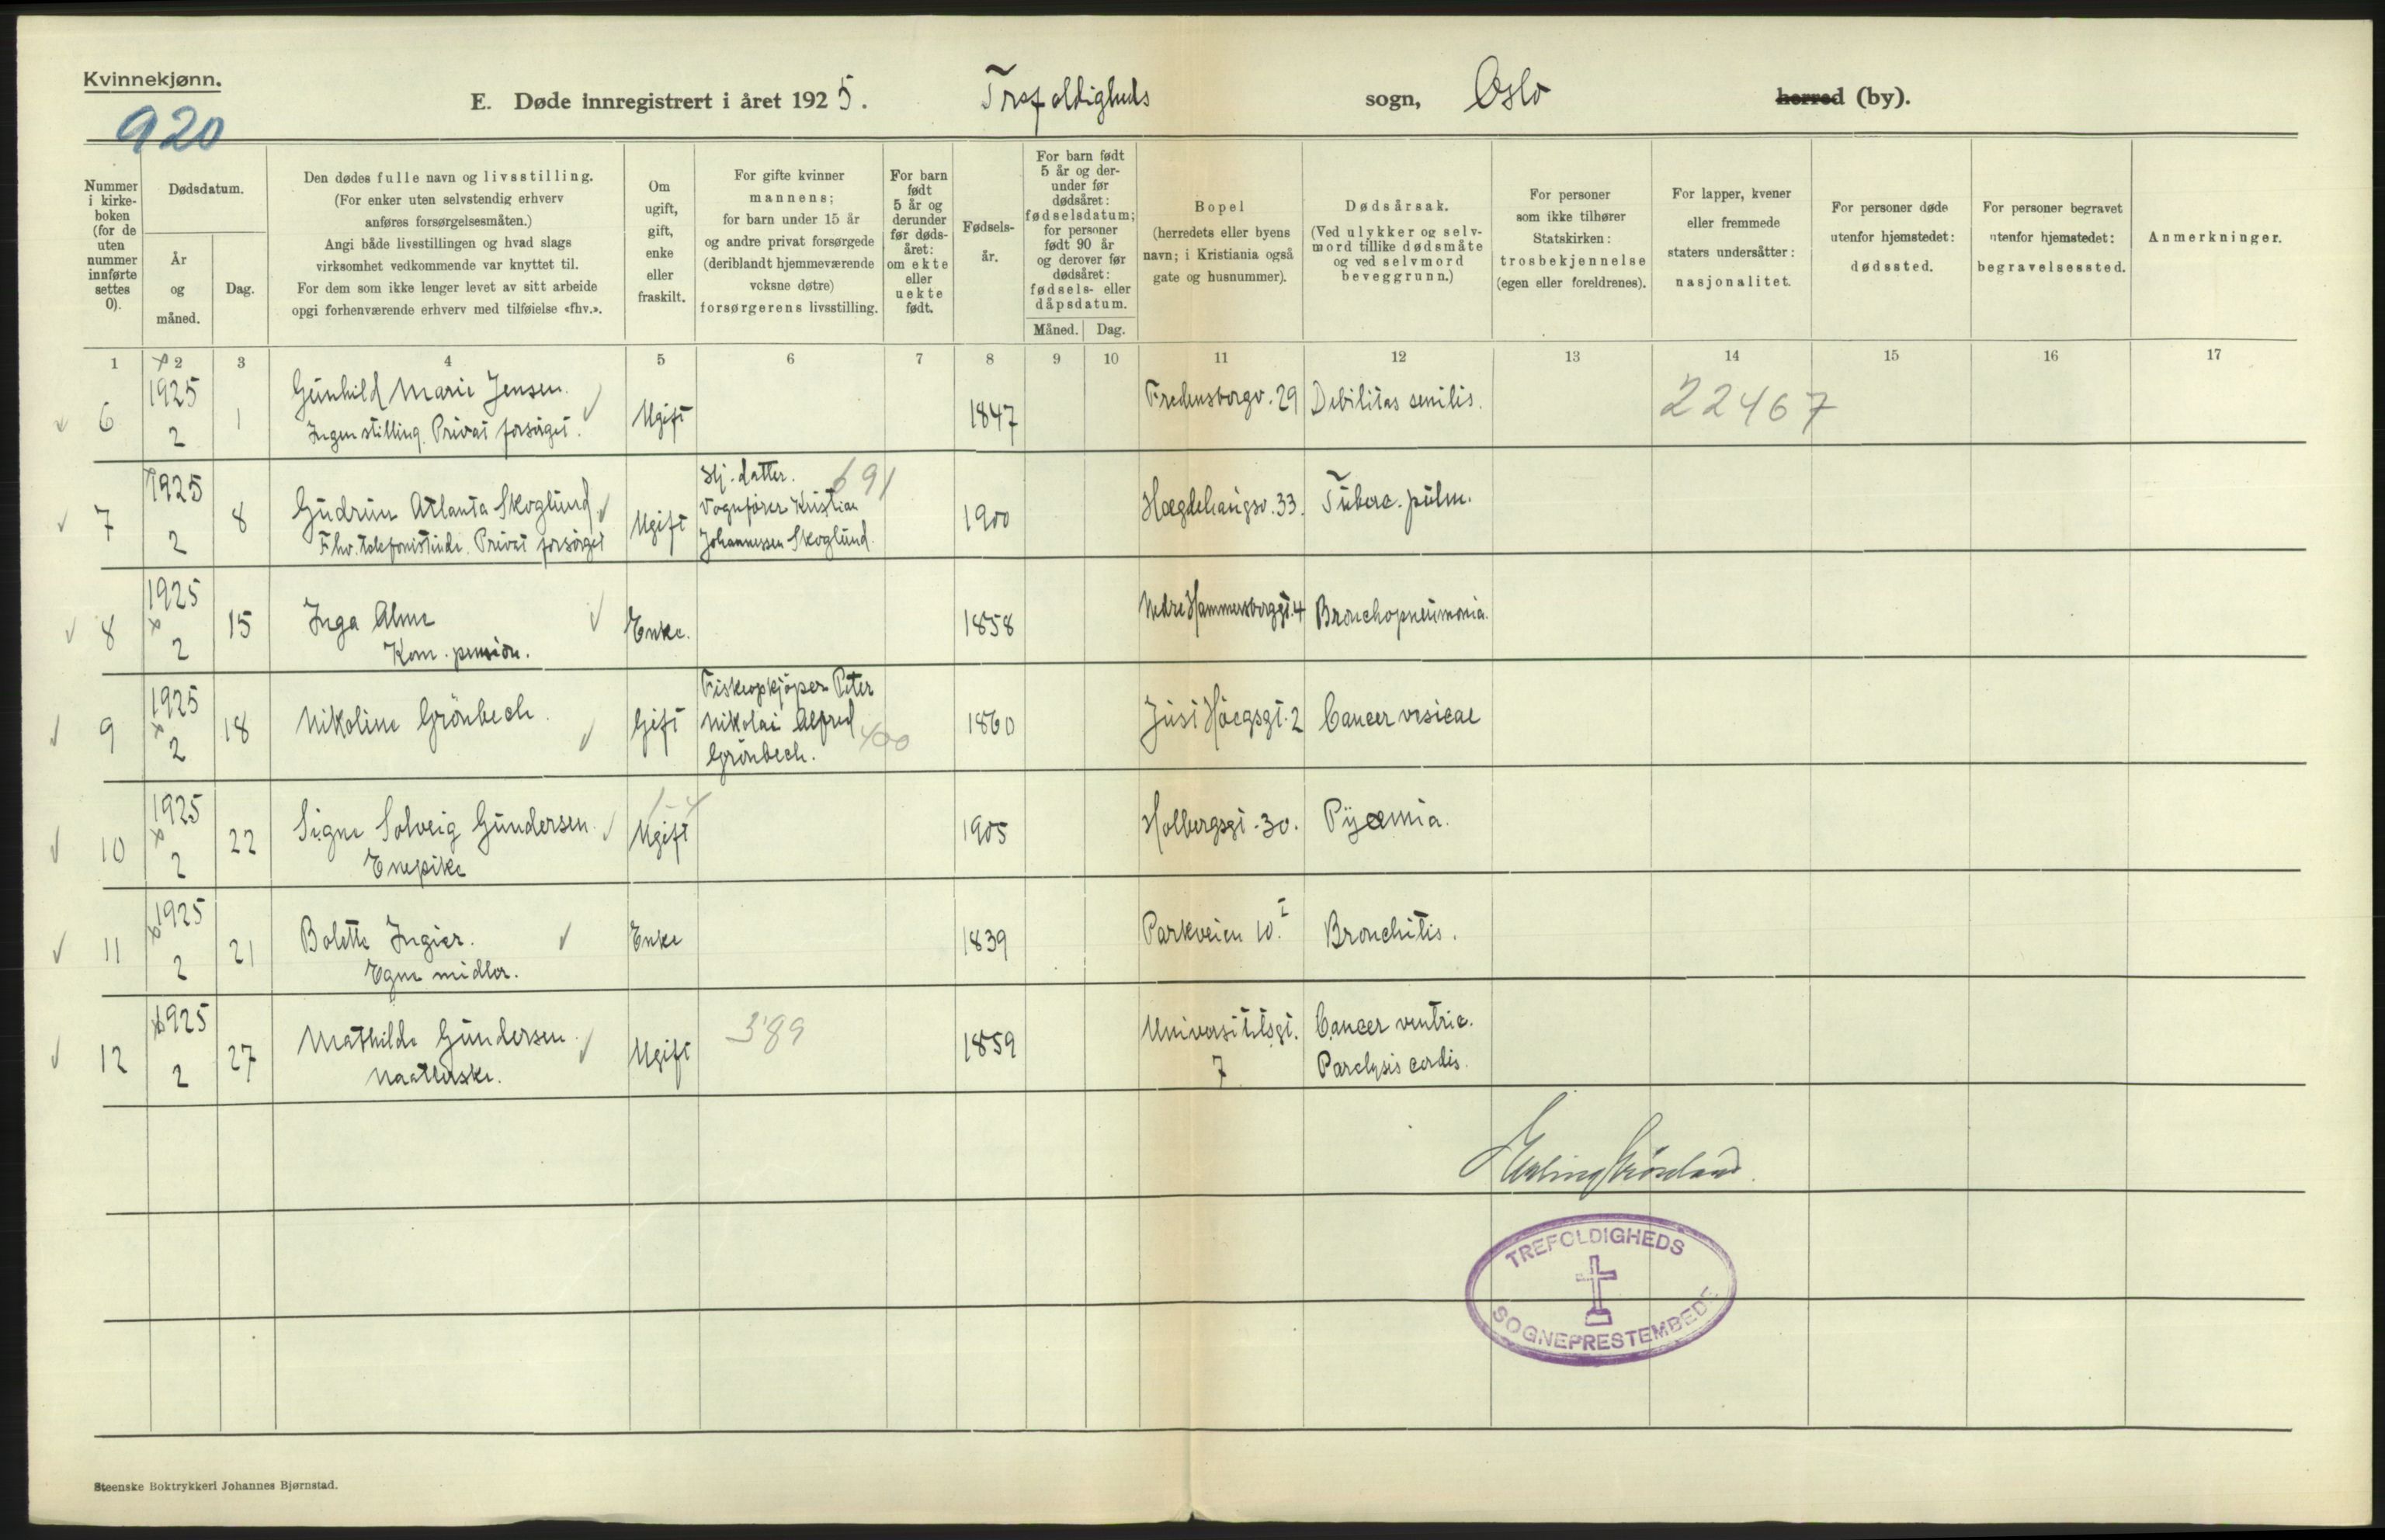 Kvinnekjønn.
920
E. Døde innregistrert i året 1925. Trefoldigheds sogn, Oslo herred (by).
Nummer i kirke-boken (for de uten nummer innførte settes 0).
Dødsdatum.
År og måned.
Dag.
Den dødes fulle navn og livsstilling.
(For enker uten selvstendig erhverv
anføres forsørgelsesmåten.)
Angi både livsstillingen og hvad slags
virksomhet vedkommende var knyttet til.
For dem som ikke lenger levet av sitt arbeide
opgi forhenværende erhverv med tilføielse «fhv.».
Om ugift, gift, enke eller fraskilt.
For gifte kvinner
mannens;
for barn under 15 år
og andre privat forsørgede
(deriblandt hjemmeværende
voksne døtre)
forsørgerens livsstilling.
For barn født 5 år og derunder før døds-året: om ekte eller uekte født.
Fødsels-år.
For barn født
5 år og der-
under før
dødsåret:
fødselsdatum;
for personer
født 90 år
og derover før
dødsåret:
fødsels- eller
dåpsdatum.
Måned. Dag.
Bopel
(herredets eller byens
navn; i Kristiania også
gate og husnummer).
Dødsårsak.
(Ved ulykker og selv-
mord tillike dødsmåte
og ved selvmord
beveggrunn.)
For personer
som ikke tilhører
Statskirken:
trosbekjennelse
(egen eller foreldrenes).
For lapper, kvener
eller fremmede
staters undersåtter:
nasjonalitet.
For personer døde
utenfor hjemstedet:
dødssted.
For personer begravet
utenfor hjemstedet:
begravelsessted.
Anmerkninger.
1 2 3 4 5 6 7 8 9 10 11 12 13 14 15 16 17
6 1925 2 1 Gunhild Marie Jensen. Ugift 1847 Fredensborgv. 29 Debilitas senilis. 22467
Ingen stilling. Privat forsørget.
7 1925 2 8 Gudrun Atlanta Skoglund Ugift 1900 Hægdehaugsv. 33. Tuberc. pulm.
Fhv. telefonistinde. Privat forsørget
Hj. datter. 691
Vognfører Kristian
Johannessen Skoglund.
8 1925 2 15 Inga Alme Enke. 1858 Nedre Hammersborggt. 4 Bronchopneumonia.
Kom. pension.
9 1925 2 18 Nikoline Grönbech. Gift 1860 Just Höegsgt. 2 Cancer vesicae
Fiskeopkjöper Peter
Nikolai Alfred
Grönbech. 400
10 1925 2 22 Signe Solveig Gundersen. Ugift 1905 Holbergsgt. 30. Pyæmia.
Enepike
11 1925 2 21 Bolette Ingier. Enke 1839 Parkveien 10. I Bronchitis.
Egne midler.
12 1925 2 27 Mathilde Gundersen. Ugift 389 1859 Universitetsgt. 7 Cancer ventric.
Naatlerske.
Paralysis cordis.
Erling Grønland.
TREFOLDIGHEDS
SOGNEPRESTEMBEDE
Steenske Boktrykkeri Johannes Bjørnstad.